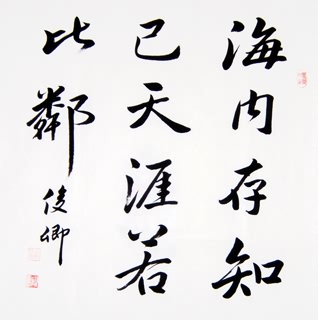 海内存知
已天涯若
比鄰
俊卿